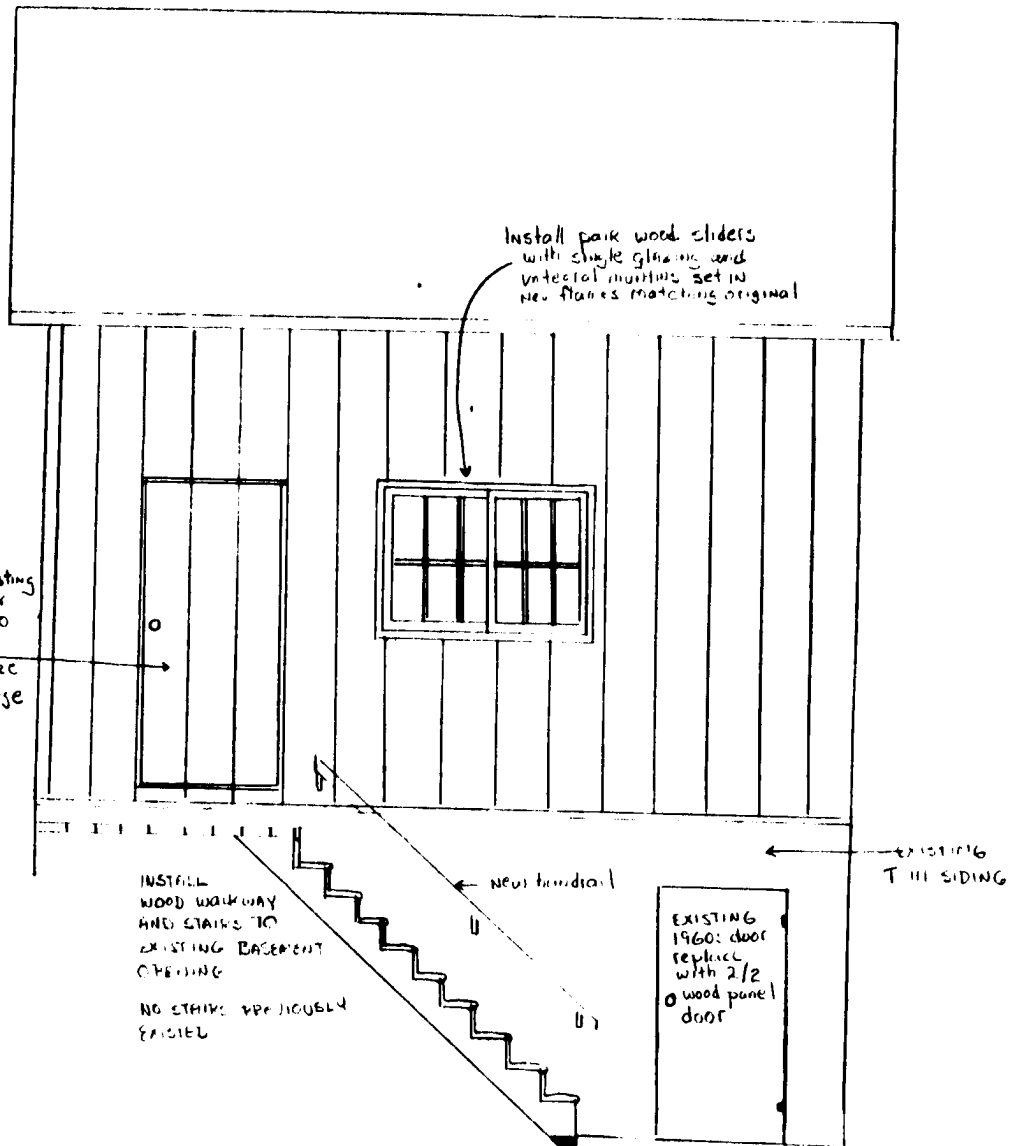 Install pair wood sliders
with single glazing and
integral muntins set in
new frames matching original
sting
se
New handrail
EXISTING
T 111 SIDING
INSTALL
WOOD WALKWAY
AND STAIRS TO
EXISTING BASEMENT
OPENING
NO STAIRS PREVIOUSLY
EXISTED
EXISTING
1960s door
replace
with 2/2
wood panel
door